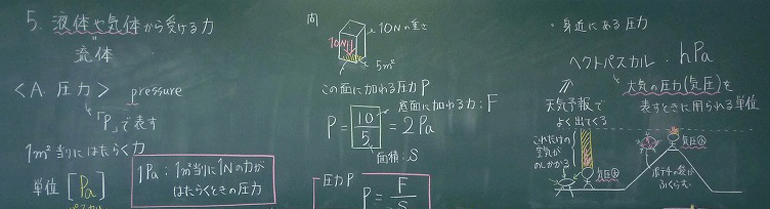 5. 液体や気体から受ける力
流体
<A. 圧力> pressure
「P」で表す
1m²当りにはたらく力
単位 [Pa]
パスカル
1Pa：1m²当りに1Nの力が
はたらくときの圧力
問
10Nの重さ
10N
5m²
この面に加わる圧力P
底面に加わる力：F
P = 10/5 = 2Pa
面積：S
圧力P
P = F/S
・身近にある圧力
ヘクトパスカル・hPa
天気予報で
よく出てくる
大気の圧力(気圧)を
表すときに用いられる単位
これだけの
空気が
のしかかる
気圧大
気圧小
ポテチの袋が
ふくらむ